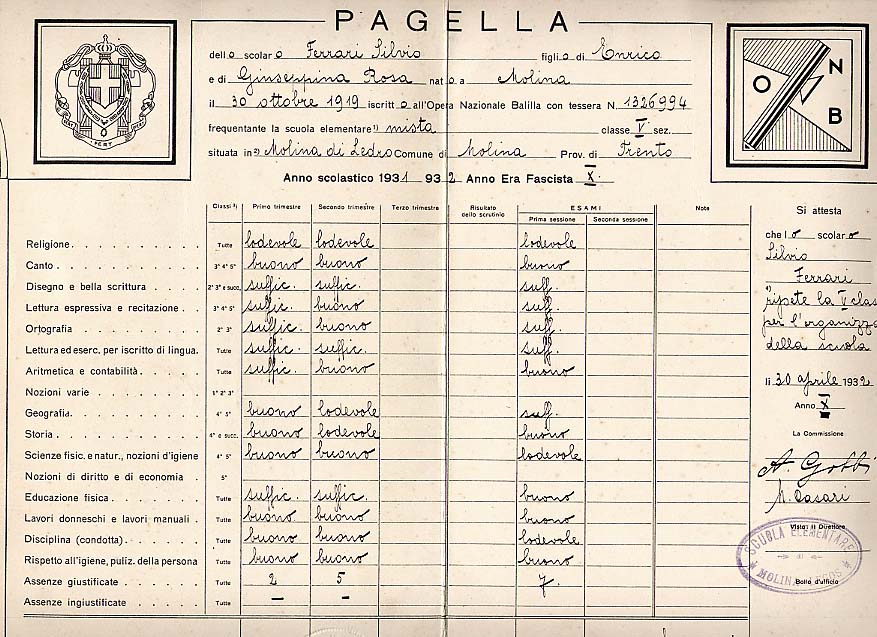 PAGELLA
dello scolaro Ferrari Silvio figlio di Enrico
e di Giuseppina Rosa nato a Molina
il 30 ottobre 1919 iscritto all'Opera Nazionale Balilla con tessera N. 1326994
frequentante la scuola elementare 1) mista classe V sez.
situata in 2) Molina di Ledro Comune di Molina Prov. di Trento
Anno scolastico 1931 932 Anno Era Fascista X.
FERT
O N B
Classi 3) Primo trimestre Secondo trimestre Terzo trimestre Risultato dello scrutinio ESAMI Prima sessione Seconda sessione Note
Religione Tutte lodevole lodevole lodevole
Canto 3ª 4ª 5ª buono buono buono
Disegno e bella scrittura 2ª 3ª e succ. suffic. suffic. suff.
Lettura espressiva e recitazione 3ª 4ª 5ª suffic. buono suff.
Ortografia 2ª 3ª suffic. buono suff.
Lettura ed eserc. per iscritto di lingua. Tutte suffic. suffic. suff.
Aritmetica e contabilità Tutte suffic. buono buono
Nozioni varie 1ª 2ª 3ª
Geografia 4ª 5ª buono lodevole suff.
Storia 4ª e succ. buono lodevole buono
Scienze fisic. e natur., nozioni d'igiene 4ª 5ª buono buono lodevole
Nozioni di diritto e di economia 5ª
Educazione fisica Tutte suffic. suffic. buono
Lavori donneschi e lavori manuali Tutte buono buono buono
Disciplina (condotta) Tutte buono buono lodevole
Rispetto all'igiene, puliz. della persona Tutte buono buono buono
Assenze giustificate Tutte 2 5 7.
Assenze ingiustificate Tutte – –
Si attesta
che lo scolaro
Silvio
Ferrari
4) ripete la V clas
per l'organizza
della scuola
li 30 aprile 1932
Anno X
La Commissione
A. Gobbi
M. Casari
Visto: Il Direttore
SCUOLA ELEMENTARE
di
MOLINA
Bollo d'ufficio